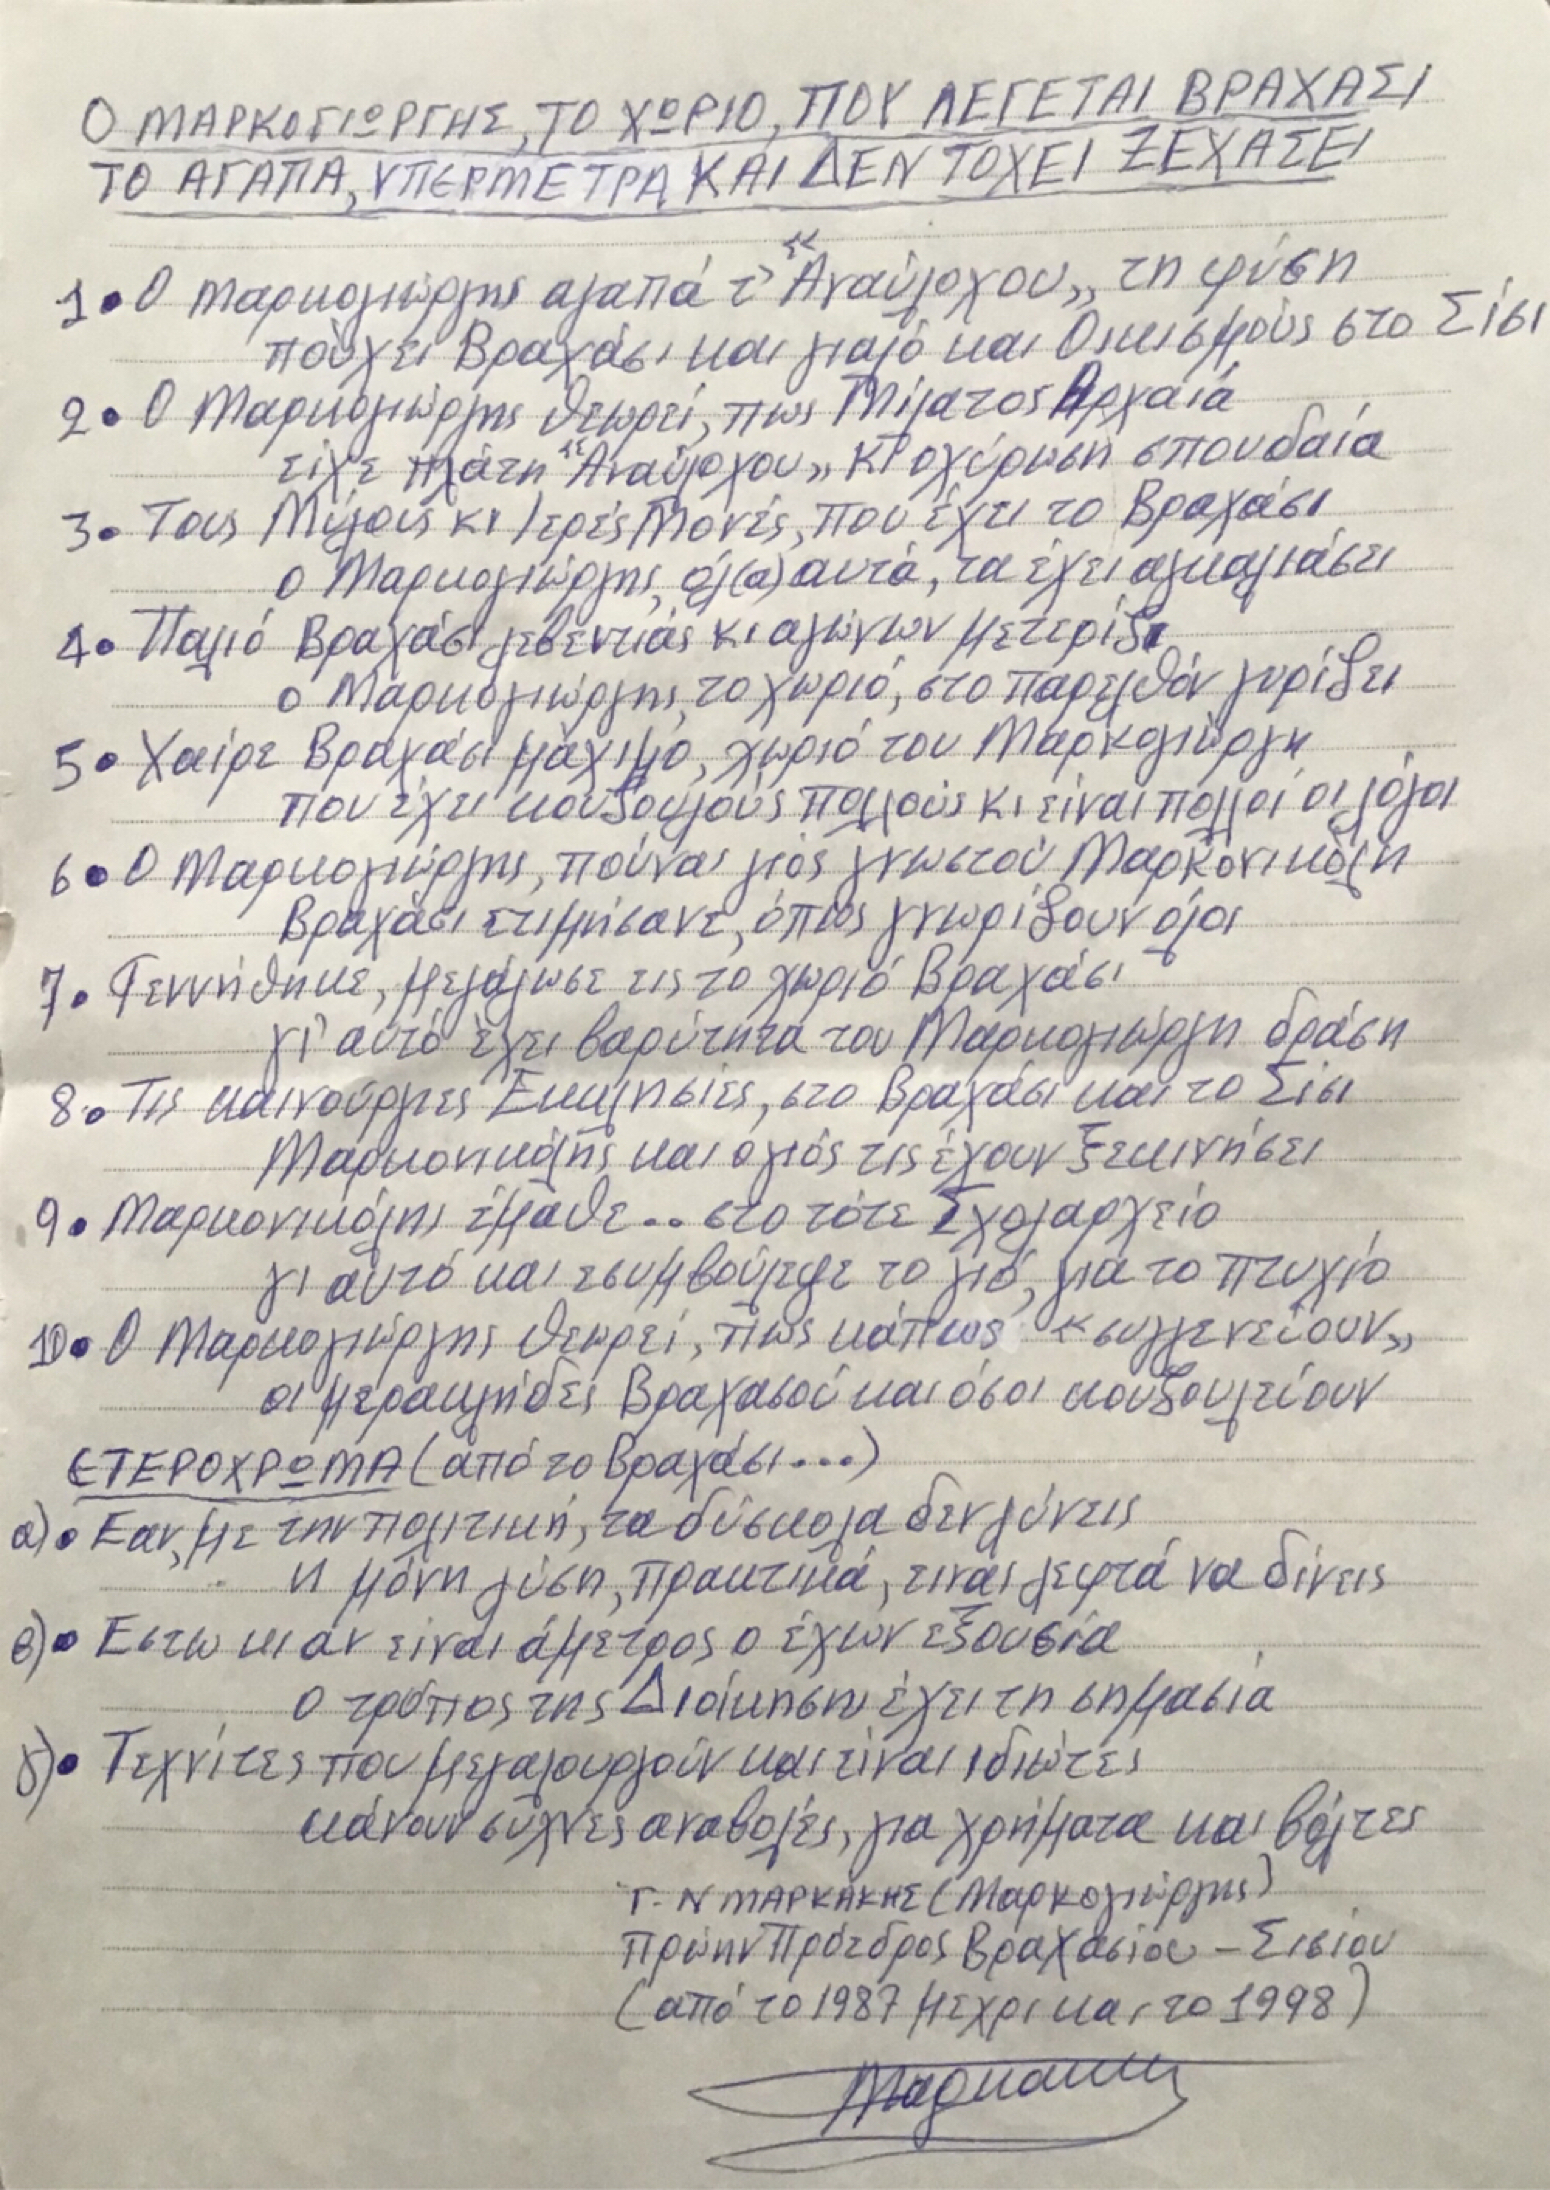 Ο ΜΑΡΚΟΓΙΩΡΓΗΣ, ΤΟ ΧΩΡΙΟ, ΠΟΥ ΛΕΓΕΤΑΙ ΒΡΑΧΑΣΙ
ΤΟ ΑΓΑΠΑ, ΥΠΕΡΜΕΤΡΑ ΚΑΙ ΔΕΝ ΤΟΧΕΙ ΞΕΧΑΣΕΙ
1. Ο Μαρκογιώργης αγαπά τ' "Αναύλοχου" τη φύση
πούχει Βραχάσι και γιαλό και Οικισμούς στο Σίσι
2. Ο Μαρκογιώργης θεωρεί, πως Μίλατος Αρχαία
είχε πλάτη "Αναύλοχου" κι οχύρωση σπουδαία
3. Τους Μύλους κι Ιερές Μονές, που έχει το Βραχάσι
ο Μαρκογιώργης, όλ(α) αυτά, τα έχει αγκαλιάσει
4. Παλιό Βραχάσι λεβεντιάς κι αγώνων μετερίζι
ο Μαρκογιώργης, το χωριό, στο παρελθόν γυρίζει
5. Χαίρε Βραχάσι μάχιμο, χωριό του Μαρκογιώργη
που έχει κουζουλούς πολλούς κι είναι πολλοί οι λόγοι
6. Ο Μαρκογιώργης, πούναι γιός γνωστού Μαρκονικόλη
Βραχάσι ετιμήσανε, όπως γνωρίζουν όλοι
7. Γεννήθηκε, μεγάλωσε εις το χωριό Βραχάσι
γι' αυτό έχει βαρύτητα του Μαρκογιώργη δράση
8. Τις καινούργιες Εκκλησίες, στο Βραχάσι και το Σίσι
Μαρκονικόλης και ο γιός τις έχουν ξεκινήσει
9. Μαρκονικόλης έμαθε.. στο τότε Σχολαρχείο
γι αυτό και εσυμβούλεψε το γιό, για το πτυχίο
10. Ο Μαρκογιώργης θεωρεί, πως κάπως «συγγενεύουν»
οι μερακλήδες Βραχασού και όσοι κουζουλεύουν
ΕΤΕΡΟΧΡΩΜΑ (από το Βραχάσι...)
α). Εαν, με την πολιτική, τα δύσκολα δεν λύνεις
η μόνη λύση, πρακτικά, είναι λεφτά να δίνεις
β). Εστω κι αν είναι άμετρος ο έχων εξουσία
ο τρόπος της Διοίκησης έχει τη σημασία
γ). Τεχνίτες που μεγαλουργούν και είναι ιδιώτες
κάνουν συχνές αναβολές, για χρήματα και βόλτες
Γ. Ν ΜΑΡΚΑΚΗΣ (Μαρκογιώργης)
Πρώην Πρόεδρος Βραχασίου - Σισίου
(από το 1987 μέχρι και το 1998)